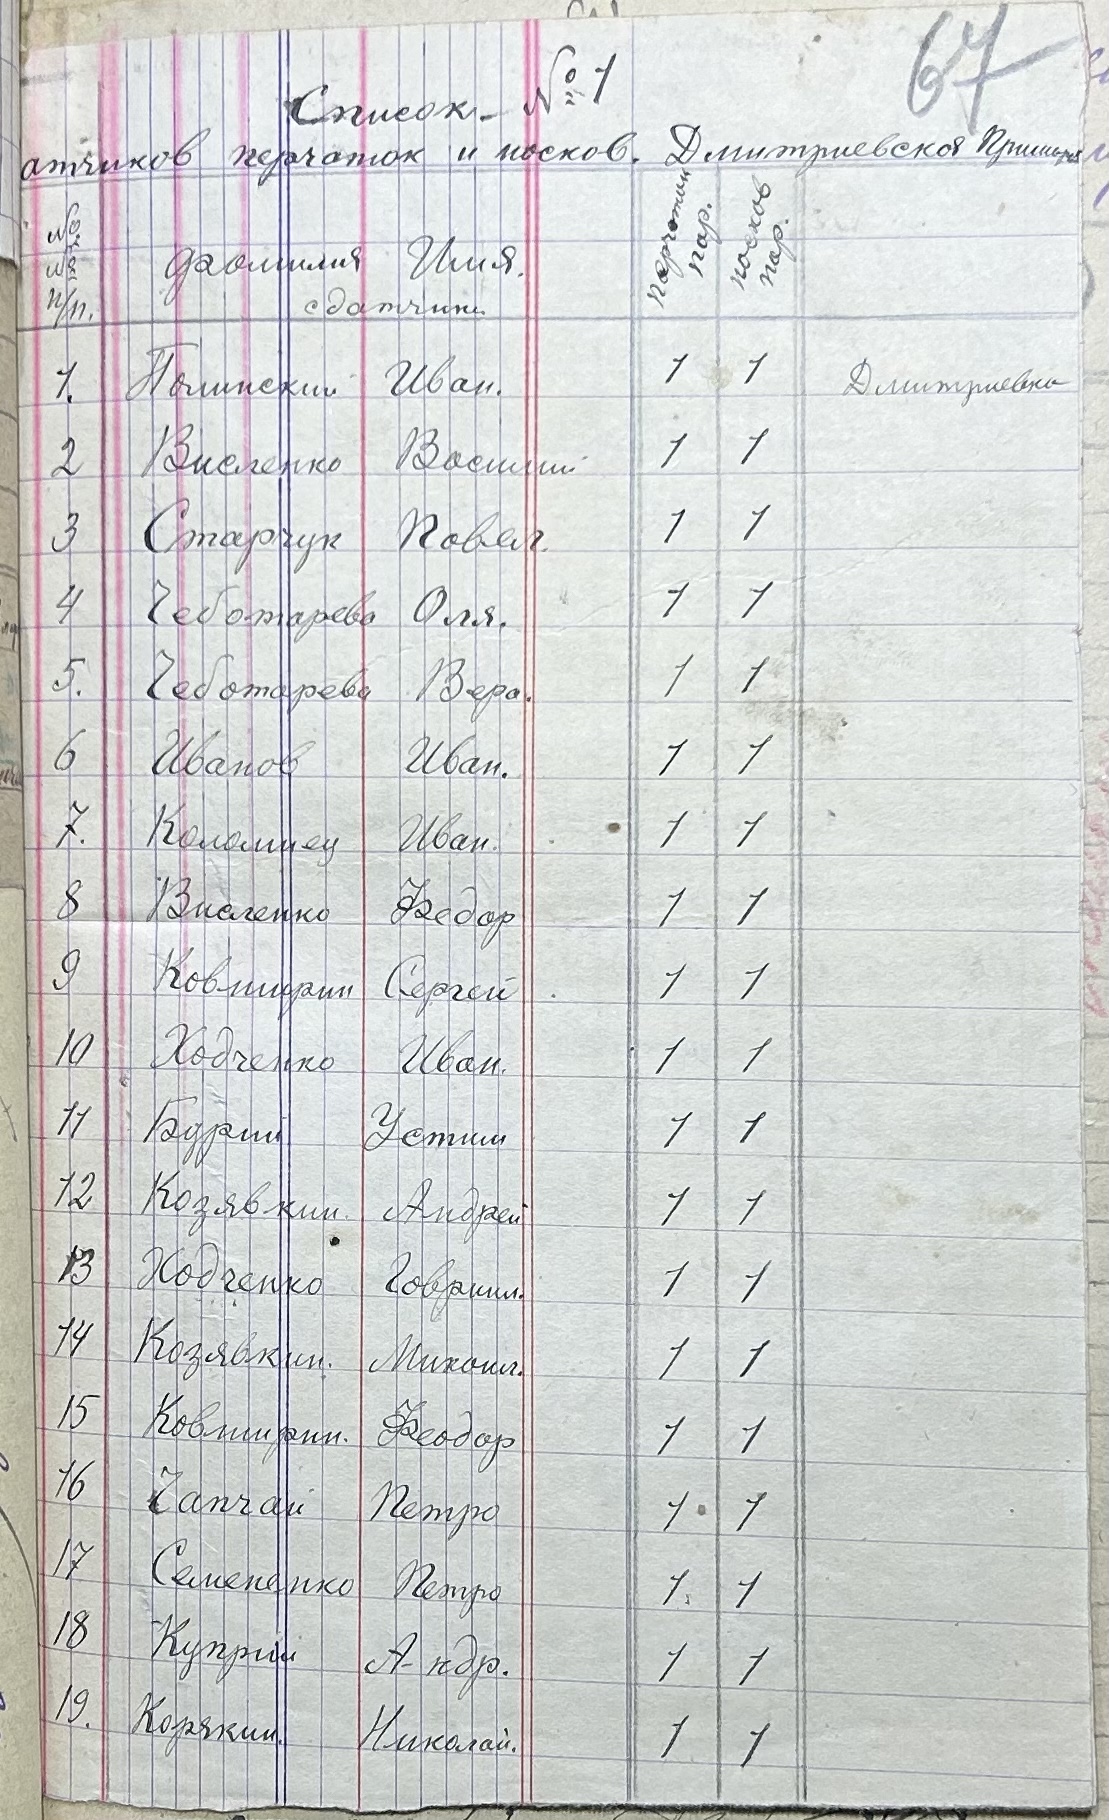 67
Список № 1
атчиков перчаток и носков. Дмитриевской
№ № п/п. Фамилия Имя. сдатчик перчатки пар. носков пар.
1. Иван. 1 1 Дмитриевка
2 Висленко Василий 1 1
3 Старчук Павел. 1 1
4 Чеботарева Оля. 1 1
5. Чеботарева Вера. 1 1
6 Иванов Иван. 1 1
7. Коломиец Иван. 1 1
8 Висленко Федор 1 1
9 Ковширин Сергей 1 1
10 Ходченко Иван. 1 1
11 Бурий Устим 1 1
12 Козявкин. Андрей 1 1
13 Ходченко Гавриил. 1 1
14 Козявкин. Михаил. 1 1
15 Ковширин. Феодор 1 1
16 Чапчай Петро 1 1
17 Семененко Петро 1 1
18 Куприй Андр. 1 1
19. Корякин. Николай. 1 1